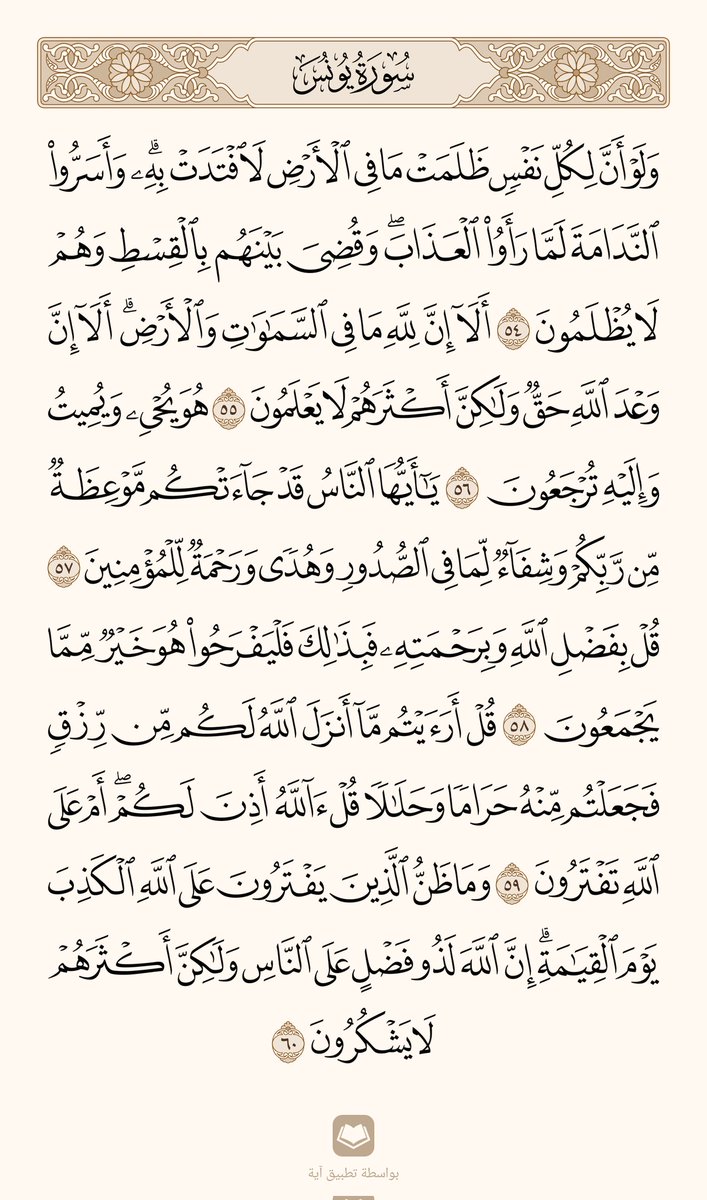 سُورَةُ يُونُسَ
وَلَوْ أَنَّ لِكُلِّ نَفْسٍ ظَلَمَتْ مَا فِى ٱلْأَرْضِ لَٱفْتَدَتْ بِهِۦ ۗ وَأَسَرُّوا۟
ٱلنَّدَامَةَ لَمَّا رَأَوُا۟ ٱلْعَذَابَ ۖ وَقُضِىَ بَيْنَهُم بِٱلْقِسْطِ وَهُمْ
لَا يُظْلَمُونَ ٥٤ أَلَآ إِنَّ لِلَّهِ مَا فِى ٱلسَّمَٰوَٰتِ وَٱلْأَرْضِ ۗ أَلَآ إِنَّ
وَعْدَ ٱللَّهِ حَقٌّ وَلَٰكِنَّ أَكْثَرَهُمْ لَا يَعْلَمُونَ ٥٥ هُوَ يُحْىِۦ وَيُمِيتُ
وَإِلَيْهِ تُرْجَعُونَ ٥٦ يَٰٓأَيُّهَا ٱلنَّاسُ قَدْ جَآءَتْكُم مَّوْعِظَةٌ
مِّن رَّبِّكُمْ وَشِفَآءٌ لِّمَا فِى ٱلصُّدُورِ وَهُدًى وَرَحْمَةٌ لِّلْمُؤْمِنِينَ ٥٧
قُلْ بِفَضْلِ ٱللَّهِ وَبِرَحْمَتِهِۦ فَبِذَٰلِكَ فَلْيَفْرَحُوا۟ هُوَ خَيْرٌ مِّمَّا
يَجْمَعُونَ ٥٨ قُلْ أَرَءَيْتُم مَّآ أَنزَلَ ٱللَّهُ لَكُم مِّن رِّزْقٍ
فَجَعَلْتُم مِّنْهُ حَرَامًا وَحَلَٰلًا قُلْ ءَآللَّهُ أَذِنَ لَكُمْ ۖ أَمْ عَلَى
ٱللَّهِ تَفْتَرُونَ ٥٩ وَمَا ظَنُّ ٱلَّذِينَ يَفْتَرُونَ عَلَى ٱللَّهِ ٱلْكَذِبَ
يَوْمَ ٱلْقِيَٰمَةِ ۗ إِنَّ ٱللَّهَ لَذُو فَضْلٍ عَلَى ٱلنَّاسِ وَلَٰكِنَّ أَكْثَرَهُمْ
لَا يَشْكُرُونَ ٦٠
بواسطة تطبيق آية